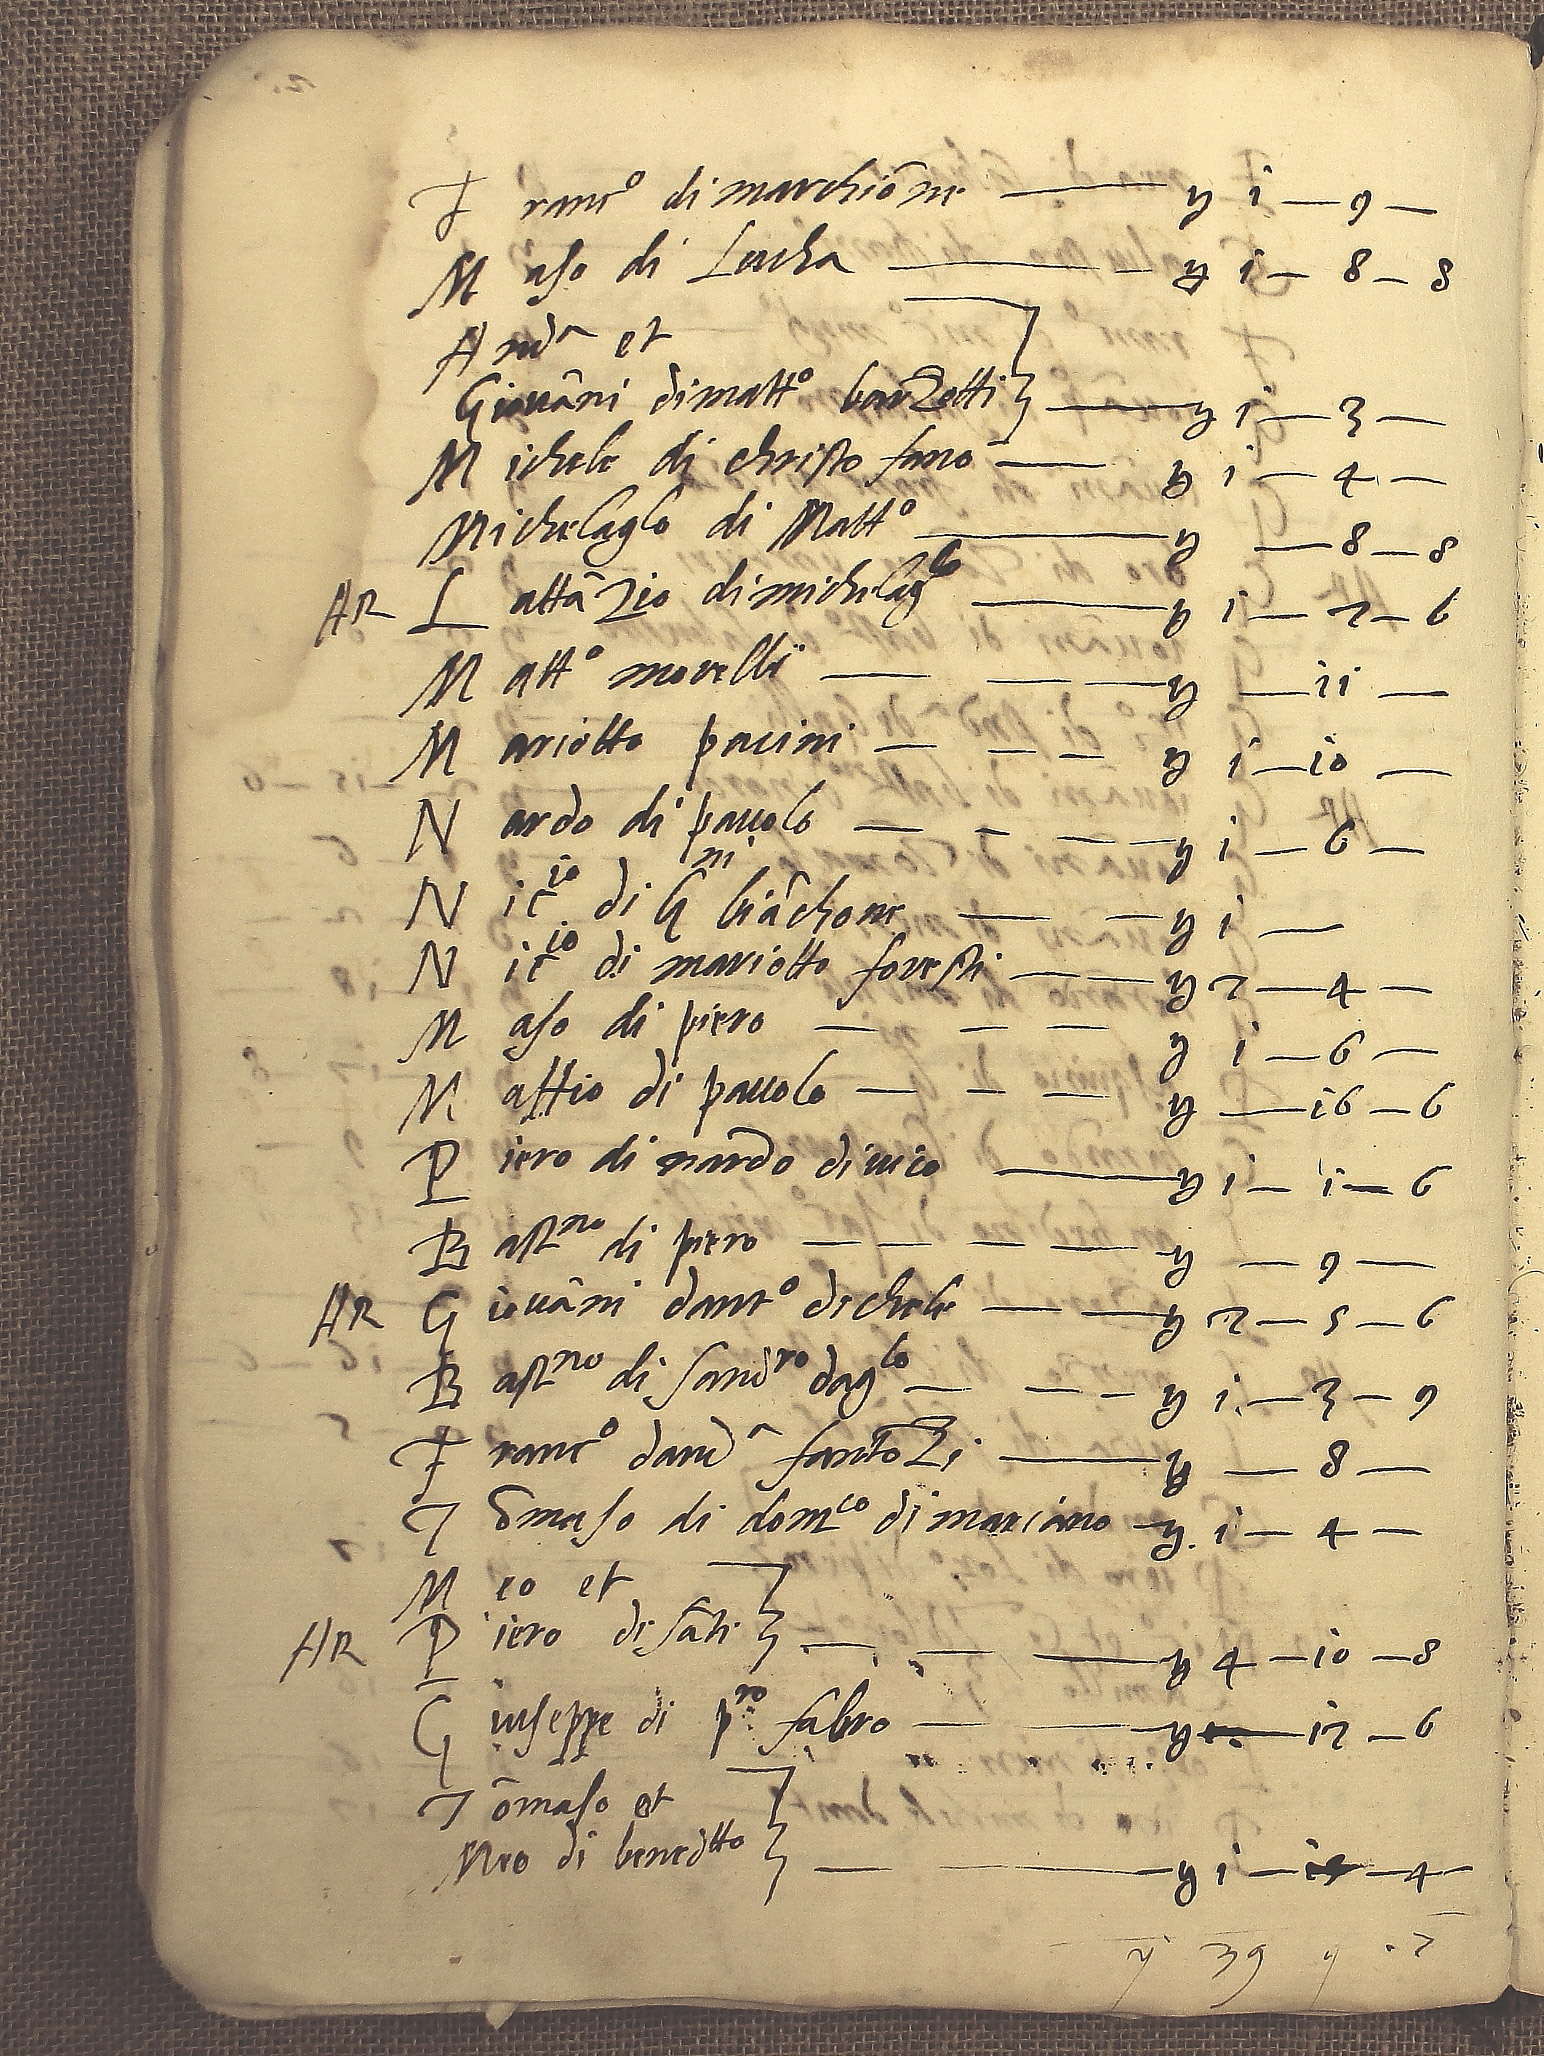 Franc° di marchiône — y i — 9 —
Maso di Lucha — y i — 8 — 8
And^a et
Giouãni di matt° barzotti } — y i — 3 —
Michele di christo fano — y i — 4 —
Michelaglo di Matt° — y — 8 — 8
AR Lattãzio di michelag^lo — y i — 2 — 6
Matt° morelli — y — ii —
Mariotto pacini — y i — io —
Nardo di pauolo — y i — 6 —
Nic^io di G^ni biãchone — y i —
Nic^io di mariotto foresti — y 2 — 4 —
Maso di piero — y i — 6 —
Maffio di pauolo — y — i6 — 6
Piero di nardo di uico — y i — i — 6
Bast^no di piero — y — 9 —
AR Giouãni dant° di chele — y 2 — 5 — 6
Bast^no di sand^ro dag^lo — y i — 3 — 9
Franc° dand^a fantozzi — y — 8 —
Tõmaso di dom^co di marciano — y i — 4 —
Meo et
AR Piero di sãti } — y 4 — io — 8
Giuseppe di p^ro fabro — y — i2 — 6
Tõmaso et
Meo di bened^tto } — y i — — 4 —
y 39 9 . 2